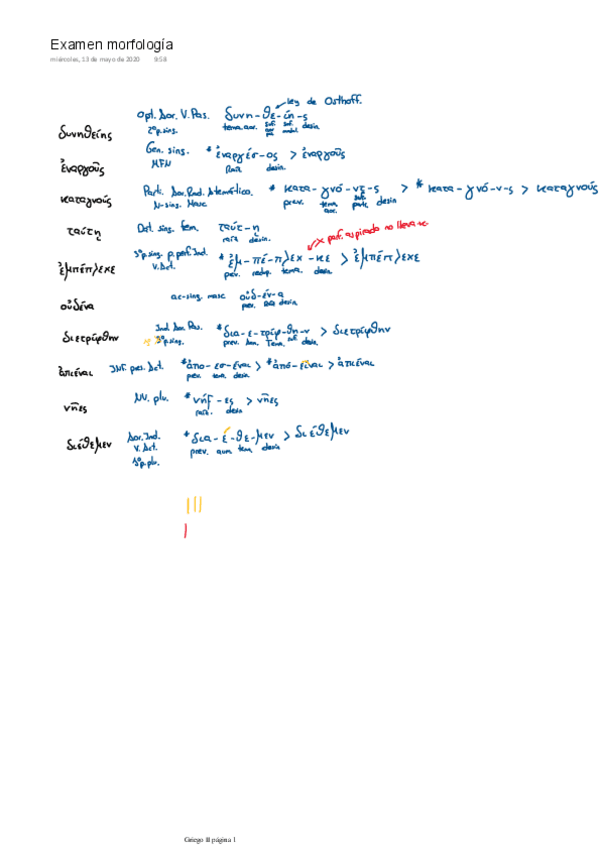 Examen morfología
miércoles, 13 de mayo de 2020 9:58
ley de Osthoff.
δυνηθείης Opt. Aor. V. Pas. δυνη-θε-ίη-ς
2ªp.sing. tema.aor. desin.
ἐναργοῦς Gen. sing. *ἐναργέσ-ος > ἐναργοῦς
MFN Raíz desin.
καταγνούς Part. Aor. Rad. Atemático. * κατα-γνό-ντ-ς > * κατα-γνό-ν-ς > καταγνούς
N-sing. Masc prev. tema aor. suf. part. desin
ταύτῃ Dat. sing. fem. ταύτ-ῃ
raíz desin.
x perf. aspirado no lleva -κ-
ἐμπέπλεχε 3ªp.sing. p. perf. Ind. *ἐμ-πέ-πλεχ-κε > ἐμπέπλεχε
V. Act. prev. redup. tema. desin.
οὐδένα ac-sing. masc οὐδ-έν-α
prev. raíz desin
διετρίφθην Ind. Aor. Pas. *δια-ε-τρίφ-θη-ν > διετρίφθην
3ªp.sing. prev. Aum. Tema. suf. desin.
ἀπιέναι INF. pres. Act. *ἀπο-εσ-έναι > *ἀπό-εῖναι > ἀπιέναι
prev. tema. desin
νῆες NV. plu. *νήϝ-ες > νῆες
raíz. desin
διέθεμεν Aor. Ind. *δια-έ-θε-μεν > διέθεμεν
V. Act. prev. aum. tem. desin
3ªp. plu.
Griego II página 1